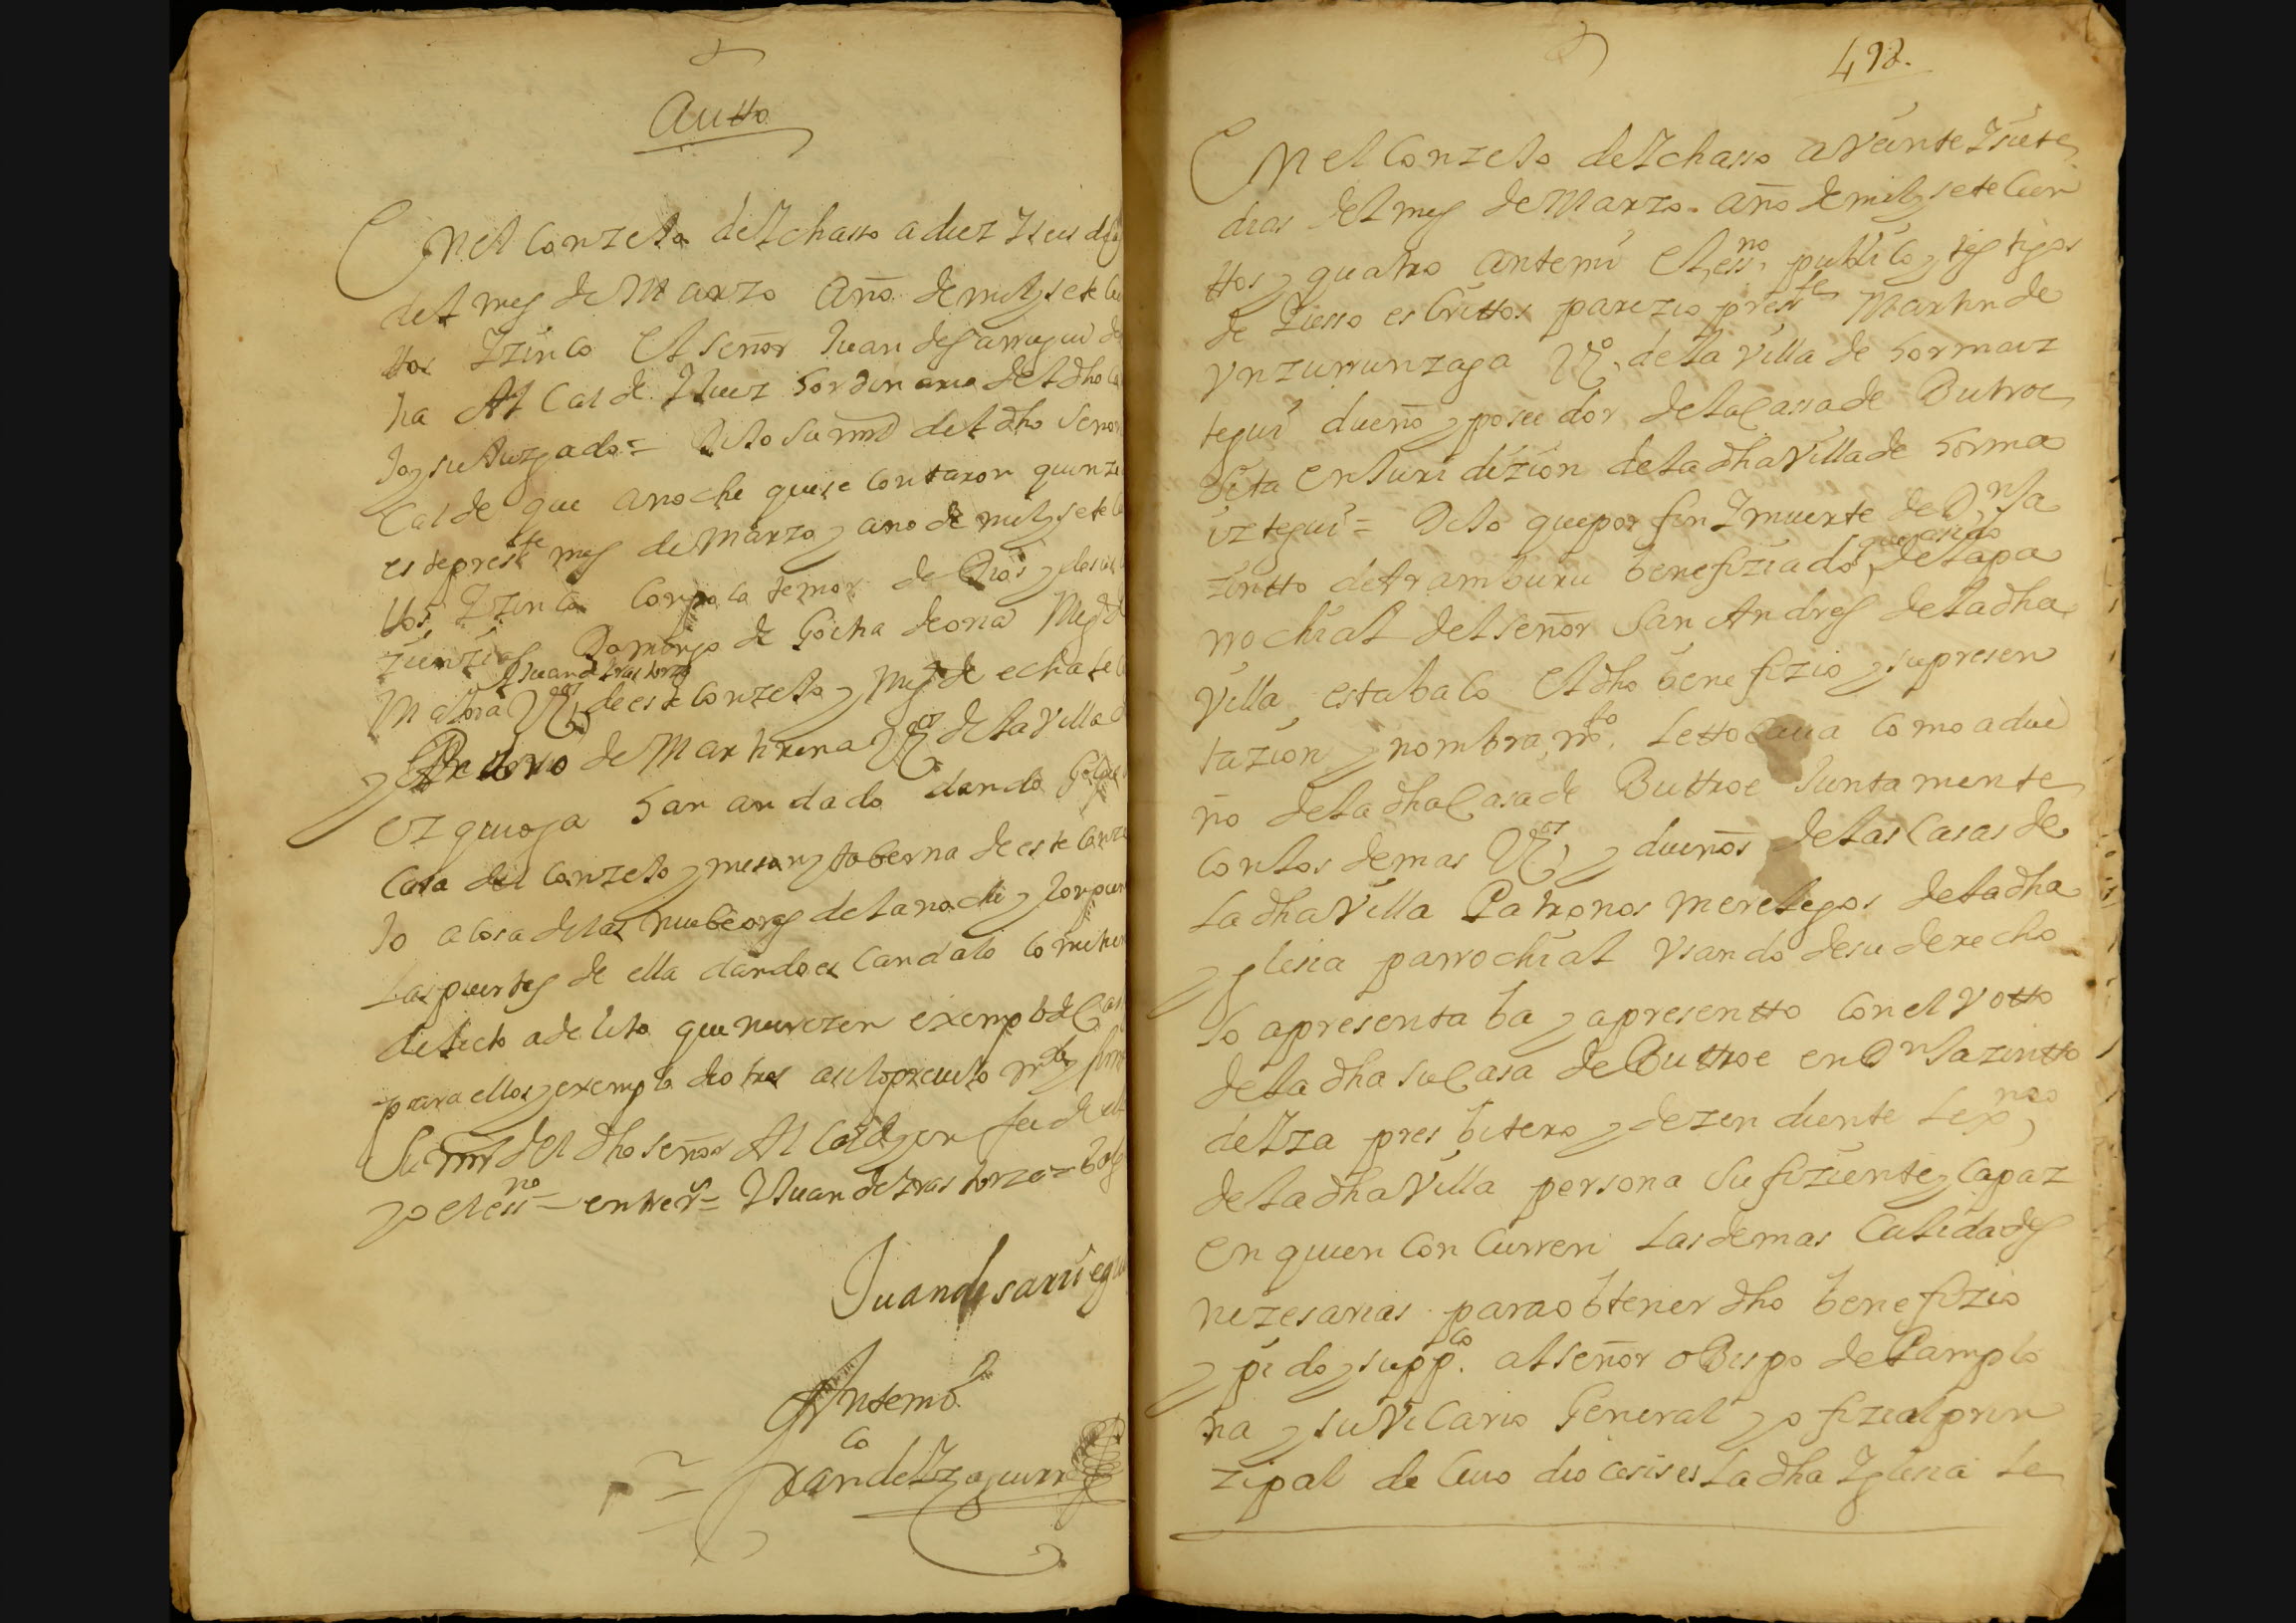 Autto
En el Conzeło de Ychasso a diez Y seis dias
del mes de Marzo Año de mil y sete Cien
ttos Y Zinco El señor Juan de Sarrugui
Al Calde Y Juez hordinario del dho
y su Juzgado = Dijo su mrd del dho Señor
Calde que anoche que se Contaron quinze
es de presste mes de Marzo y ano de mil y sete
ttos Y Zinco Con poca temor de Dios y
Domingo de Goitia deona Migl de
Y Juan de Yrastorza
Matoia Vzos de este Conzejo y Migl de echate
y Pedro de Martirena Vzos de la Villa
Ezquioga han andado dando Golpes
Casa del Conzejo y meson y taberna de este Conze
jo a cosa de las nuebe oras de la noche y
las puertas de ella dando es Candalo Cometien
delicto a delito que merezen exemplo de Cas
para ellos y exemplo de otros assi lo probeyo mdo y firmo
Su mrd del dho señor Al Calde y en fee de ello
yo el essno = entre rs = Y Juan de Yrastorza =
Juan de sarruegui
Antemi
Franco de Yzaguirre
498.
En el Conzejo de Ychasso a Veinte Y siete
dias del mes de Marzo año de mil y sete Cien
ttos y quatro Ante mi el essno publico y testigos
de Yusso escrittos parezio presste Martin de
Vnzurrunzaga Vzo de la Villa de hormaiz
tegui dueño y posedor de la Cassa de Butroe
Sita en Juridizion de la dha Villa de horma
iztegui = Dijo que por fin Y muerte de Dn Ja
que a sido
zintto de Aramburu benefiziado de la pa
rrochial del señor San Andres de la dha
Villa estaba Co El dho benefizio y su presen
tazion y nombramto le ttocaua Como a due
ño de la dha Casa de Buttroe Juntamente
Con los demas Vzos y dueños de las Casas de
la dha Villa Patronos merelegos de la dha
yglesia parrochial Vsando de su derecho
lo apresentaba y apresentto Con el Votto
de la dha su Casa de Buttroe en Dn Jazintto
de Yza presbitero y dezendiente lexno
de la dha Villa persona Sufiziente y Capaz
en quien Con Curren las demas Calidades
nezesarias para obtener dho benefizio
y pido y suppco al señor oBispo de Pamplo
na y su Vicario General y ofizial prin
zipal de Cuio diocesis es la dha Yglesia le